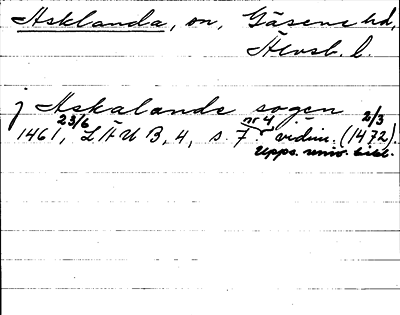 Asklanda, sn, Gäsene hd,
Älvsb. l.
j Askalanda sogen
23/6 nr 4 2/3
1461, LHUB, 4, s. 7. vidim. (1472).
Upps. univ. bibl.